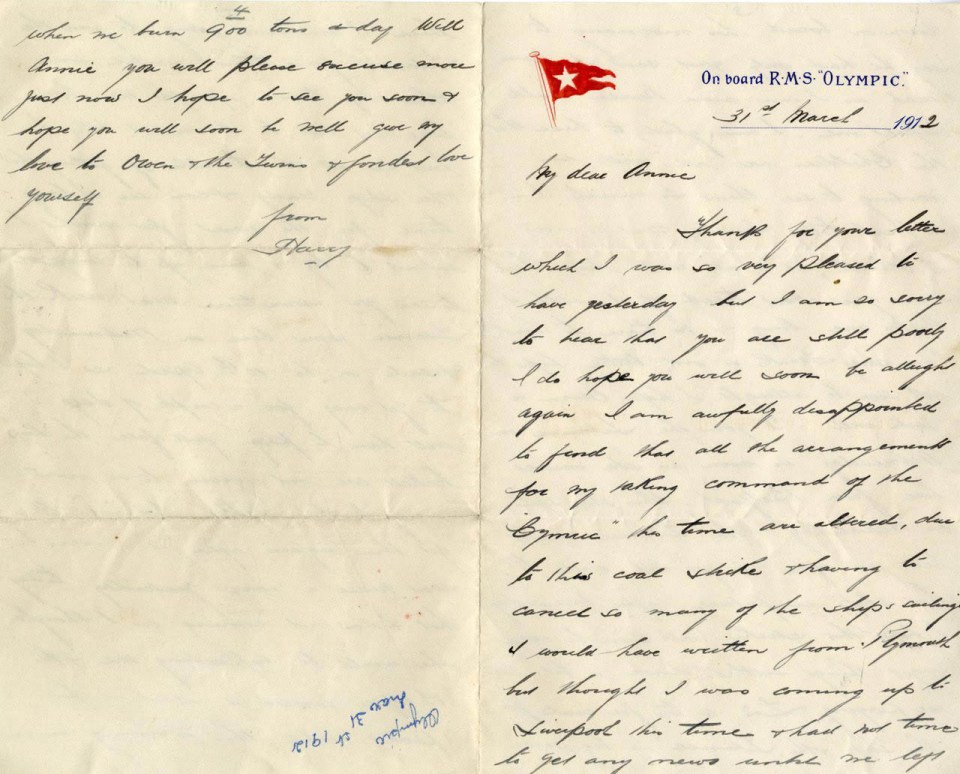 4
when we burn 900 tons a day Well
Annie you will please excuse more
just now I hope to see you soon &
hope you will soon be well give my
love to Owen & the Twins & fondest love
yourself
from
Harry
On board R·M·S·"OLYMPIC."
31st March 1912
My dear Annie
Thanks for your letter
which I was so very pleased to
have yesterday but I am so sorry
to hear that you are still poorly
I do hope you will soon be allright
again I am awfully disappointed
to find that all the arrangements
for my taking command of the
"Cymric" this time are altered, due
to this coal strike & having to
cancel so many of the ships sailings
I would have written from Plymouth
but thought I was coming up to
Liverpool this time & had not time
to get any news until we left
Olympic
Mar 31
st 1912